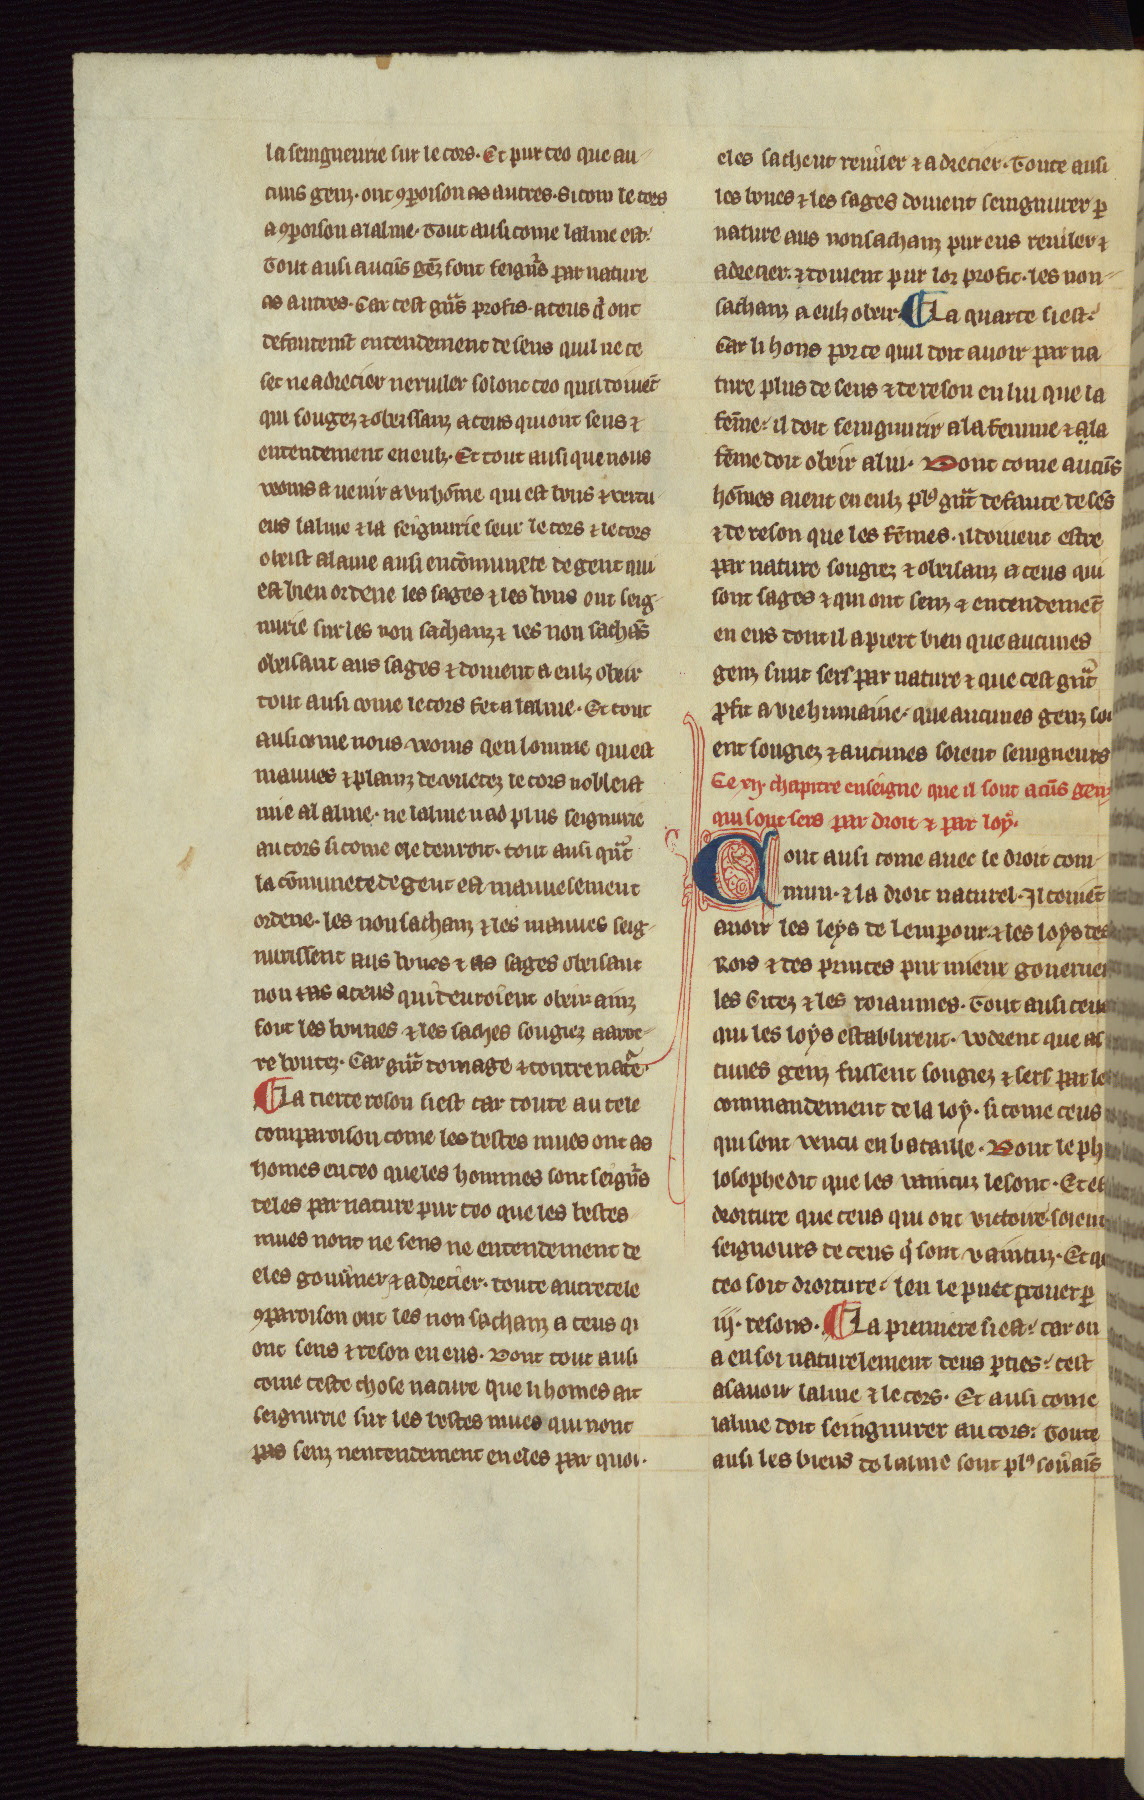 la seingneurie sur le cors. Et pur ceo que au
cuns genz. ont ꝯparoison as autres. si com le cors
a ꝯparoison a lalme. Tout ausi come lalme est.
Tout ausi aucũs gẽz sont seigñrs par nature
as autres. Car cest grãs profis. a ceus q̃ ont
defautemẽt entendement de sens quil ne ce
set ne adrecier ne riuler solonc ceo quil doiuẽt
qui sougez ⁊ obeissanz a ceus qui ont sens ⁊
entendement en eulz. Et tout ausi que nous
veoms a uenir a vn hõme qui est bons ⁊ vertu
eus lalme ⁊ la seignurie seur le cors ⁊ le cors
obeist a lame ausi en cõmunete de gent qui
est bien ordene les sages ⁊ les bons ont seig
nurie sur les non sachanz ⁊ les non sachãs
obeisant aus sages ⁊ doiuent a eulz obeir
tout ausi come le cors fet a lalme. Et tout
ausi come nous veoms qen lomme qui est
mauues ⁊ plainz de viletez le cors nobeist
mie al alme. ne lalme nad plus seignurie
au cors si come ele deuroit. tout ausi qũt
la cõmunete de gent est mauuesement
ordene. les non sachanz ⁊ les mauues seig
nurissent aus bones ⁊ as sages obeisant
non pas a ceus qui deuroient obeir ainz
sont les bonnes ⁊ les saches sougiez
re boutez. Car grãt domage ⁊ contre natẽ
La tierce reson si est car toute au tele
comparoison come les bestes mues ont as
homes en ceo que les hommes sont seigñrs
deles par nature pur ceo que les bestes
mues nont ne sens ne entendement de
eles gouũner ⁊ a drecier. toute autretele
ꝯparoison ont les non sachanz a ceus qi
ont sens ⁊ reson en eus. Dont tout ausi
come ceste chose nature que li homes ait
seignurie sur les bestes mues qui nont
pas senz nentendement en eles par quoi.
eles sachent reuler ⁊ a drecier. Toute ausi
les bones ⁊ les sages doiuent seingnurer ꝑ
nature aus non sachanz pur eus reuiler ⁊
adrecier. ⁊ doiuent pur lor profit. les non
sachanz a eulz obeir. La quarte si est.
Car li hons por ce quil doit auoir par na
ture plus de sens ⁊ de reson en lui que la
fẽme. il doit seingnurir a la femme ⁊ a la
fẽme doit obeir a lui. Dont come aucũs
hõmes aient en eulz plꝰ grãt defaute de sẽs
⁊ de reson que les fẽmes. il doiuent estre
par nature sougiez ⁊ obeisanz a ceus qui
sont sages ⁊ qui ont senz ⁊ entendemẽt
en eus dont il apiert bien que aucunes
genz sunt sers par nature ⁊ que cest grãt
ꝓfit a vie humaine. que aucunes genz soi
ent sougiez ⁊ aucunes soient seingneurs
Ce xij. chapitre enseigne que il sont acũs gen
qui sont sers par droit ⁊ par loy.
Tout ausi come auec le droit com
mun. ⁊ la droit naturel. Il couiẽt
auoir les leys de lemperour. ⁊ les loys des
Rois ⁊ des princes pur mieux gouerner
les Citez ⁊ les roiaumes. Tout ausi ceus
qui les loys establirent. vodrent que au
cunes genz fussent sougiez ⁊ sers par le
commandement de la loy. si come ceus
qui sont vencu en bataille. Dont le phi
losophe dit que les vaincuz le sont. Et est
droiture que ceus qui ont victoire. soient
seignours de ceus q̃ sont vaincuz. Et que
ceo soit droiture. len le puet prouer ꝑ
iij. resons. La premiere si est. car on
a en soi naturelement deus ꝑties. cest
asauoir lalme ⁊ le cors. Et ausi come
lalme doit seingnurer au cors. Toute
ausi les biens de lalme sont plꝰ souũais